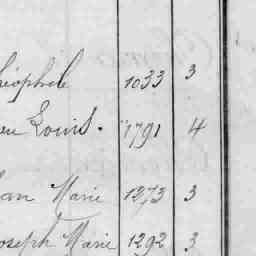 héophile 1033 3
Louis. 1791 4
an Marie 1273 3
oseph Marie 1292 3